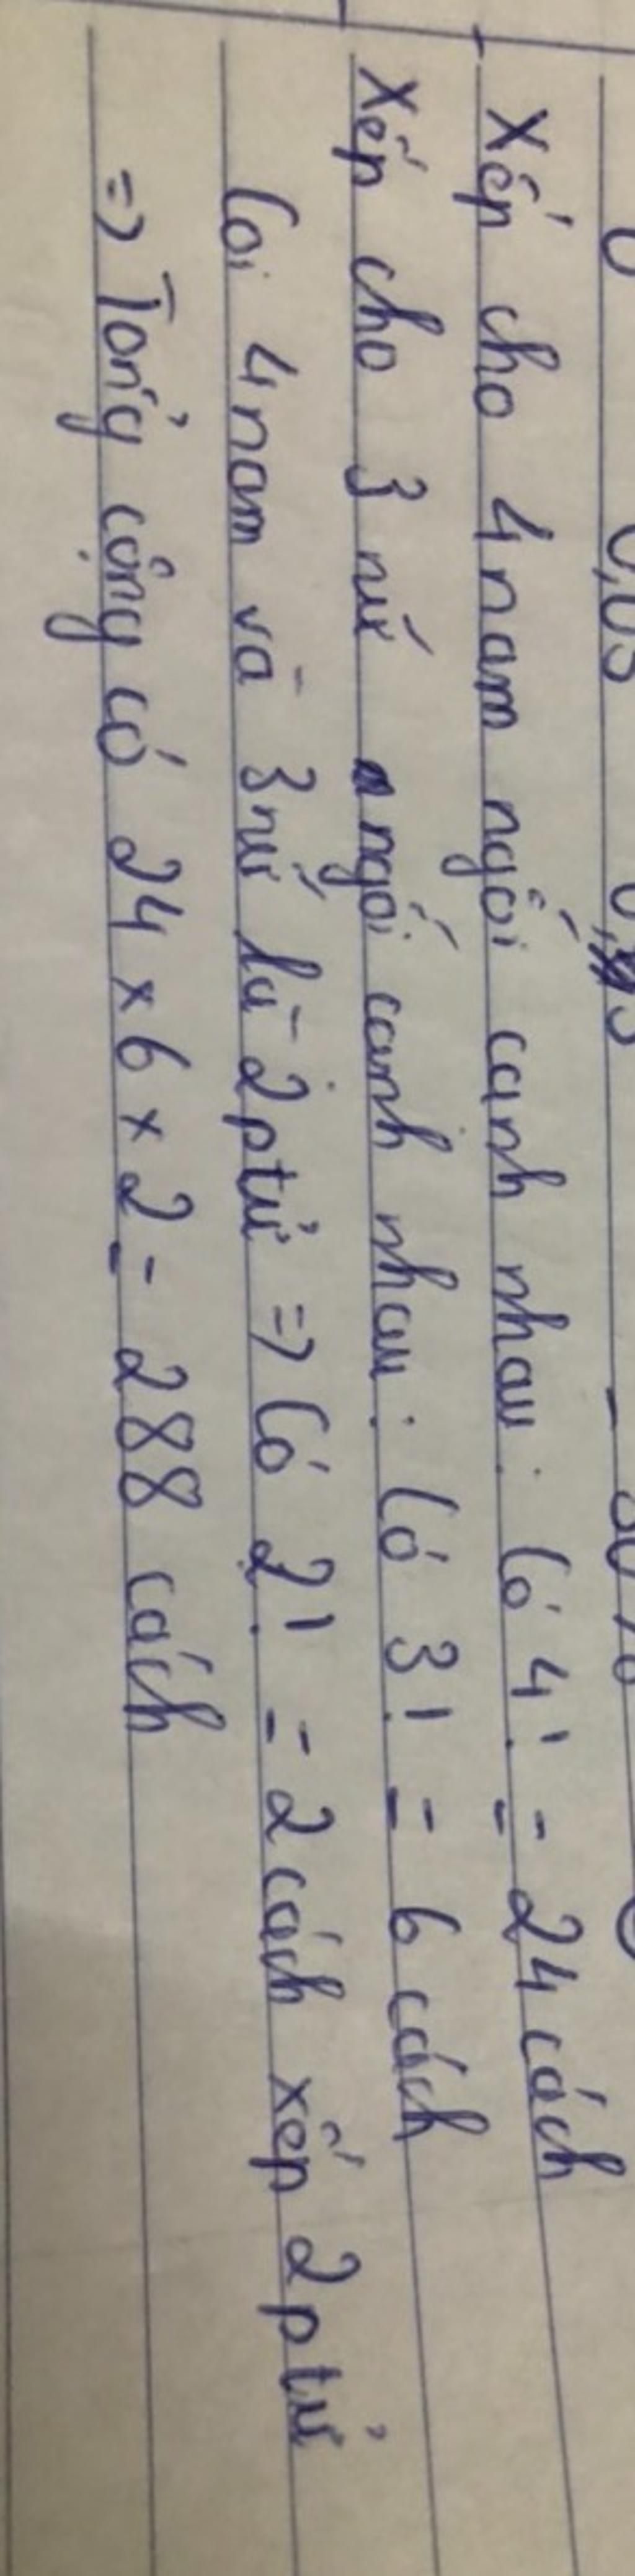 Xếp cho 4 nam ngồi cạnh nhau: Có 4! = 24 cách
Xếp cho 3 nữ ngồi cạnh nhau: Có 3! = 6 cách
Coi 4 nam và 3 nữ là 2 ptử => Có 2! = 2 cách xếp 2 ptử
=> Tổng cộng có 24 x 6 x 2 = 288 cách